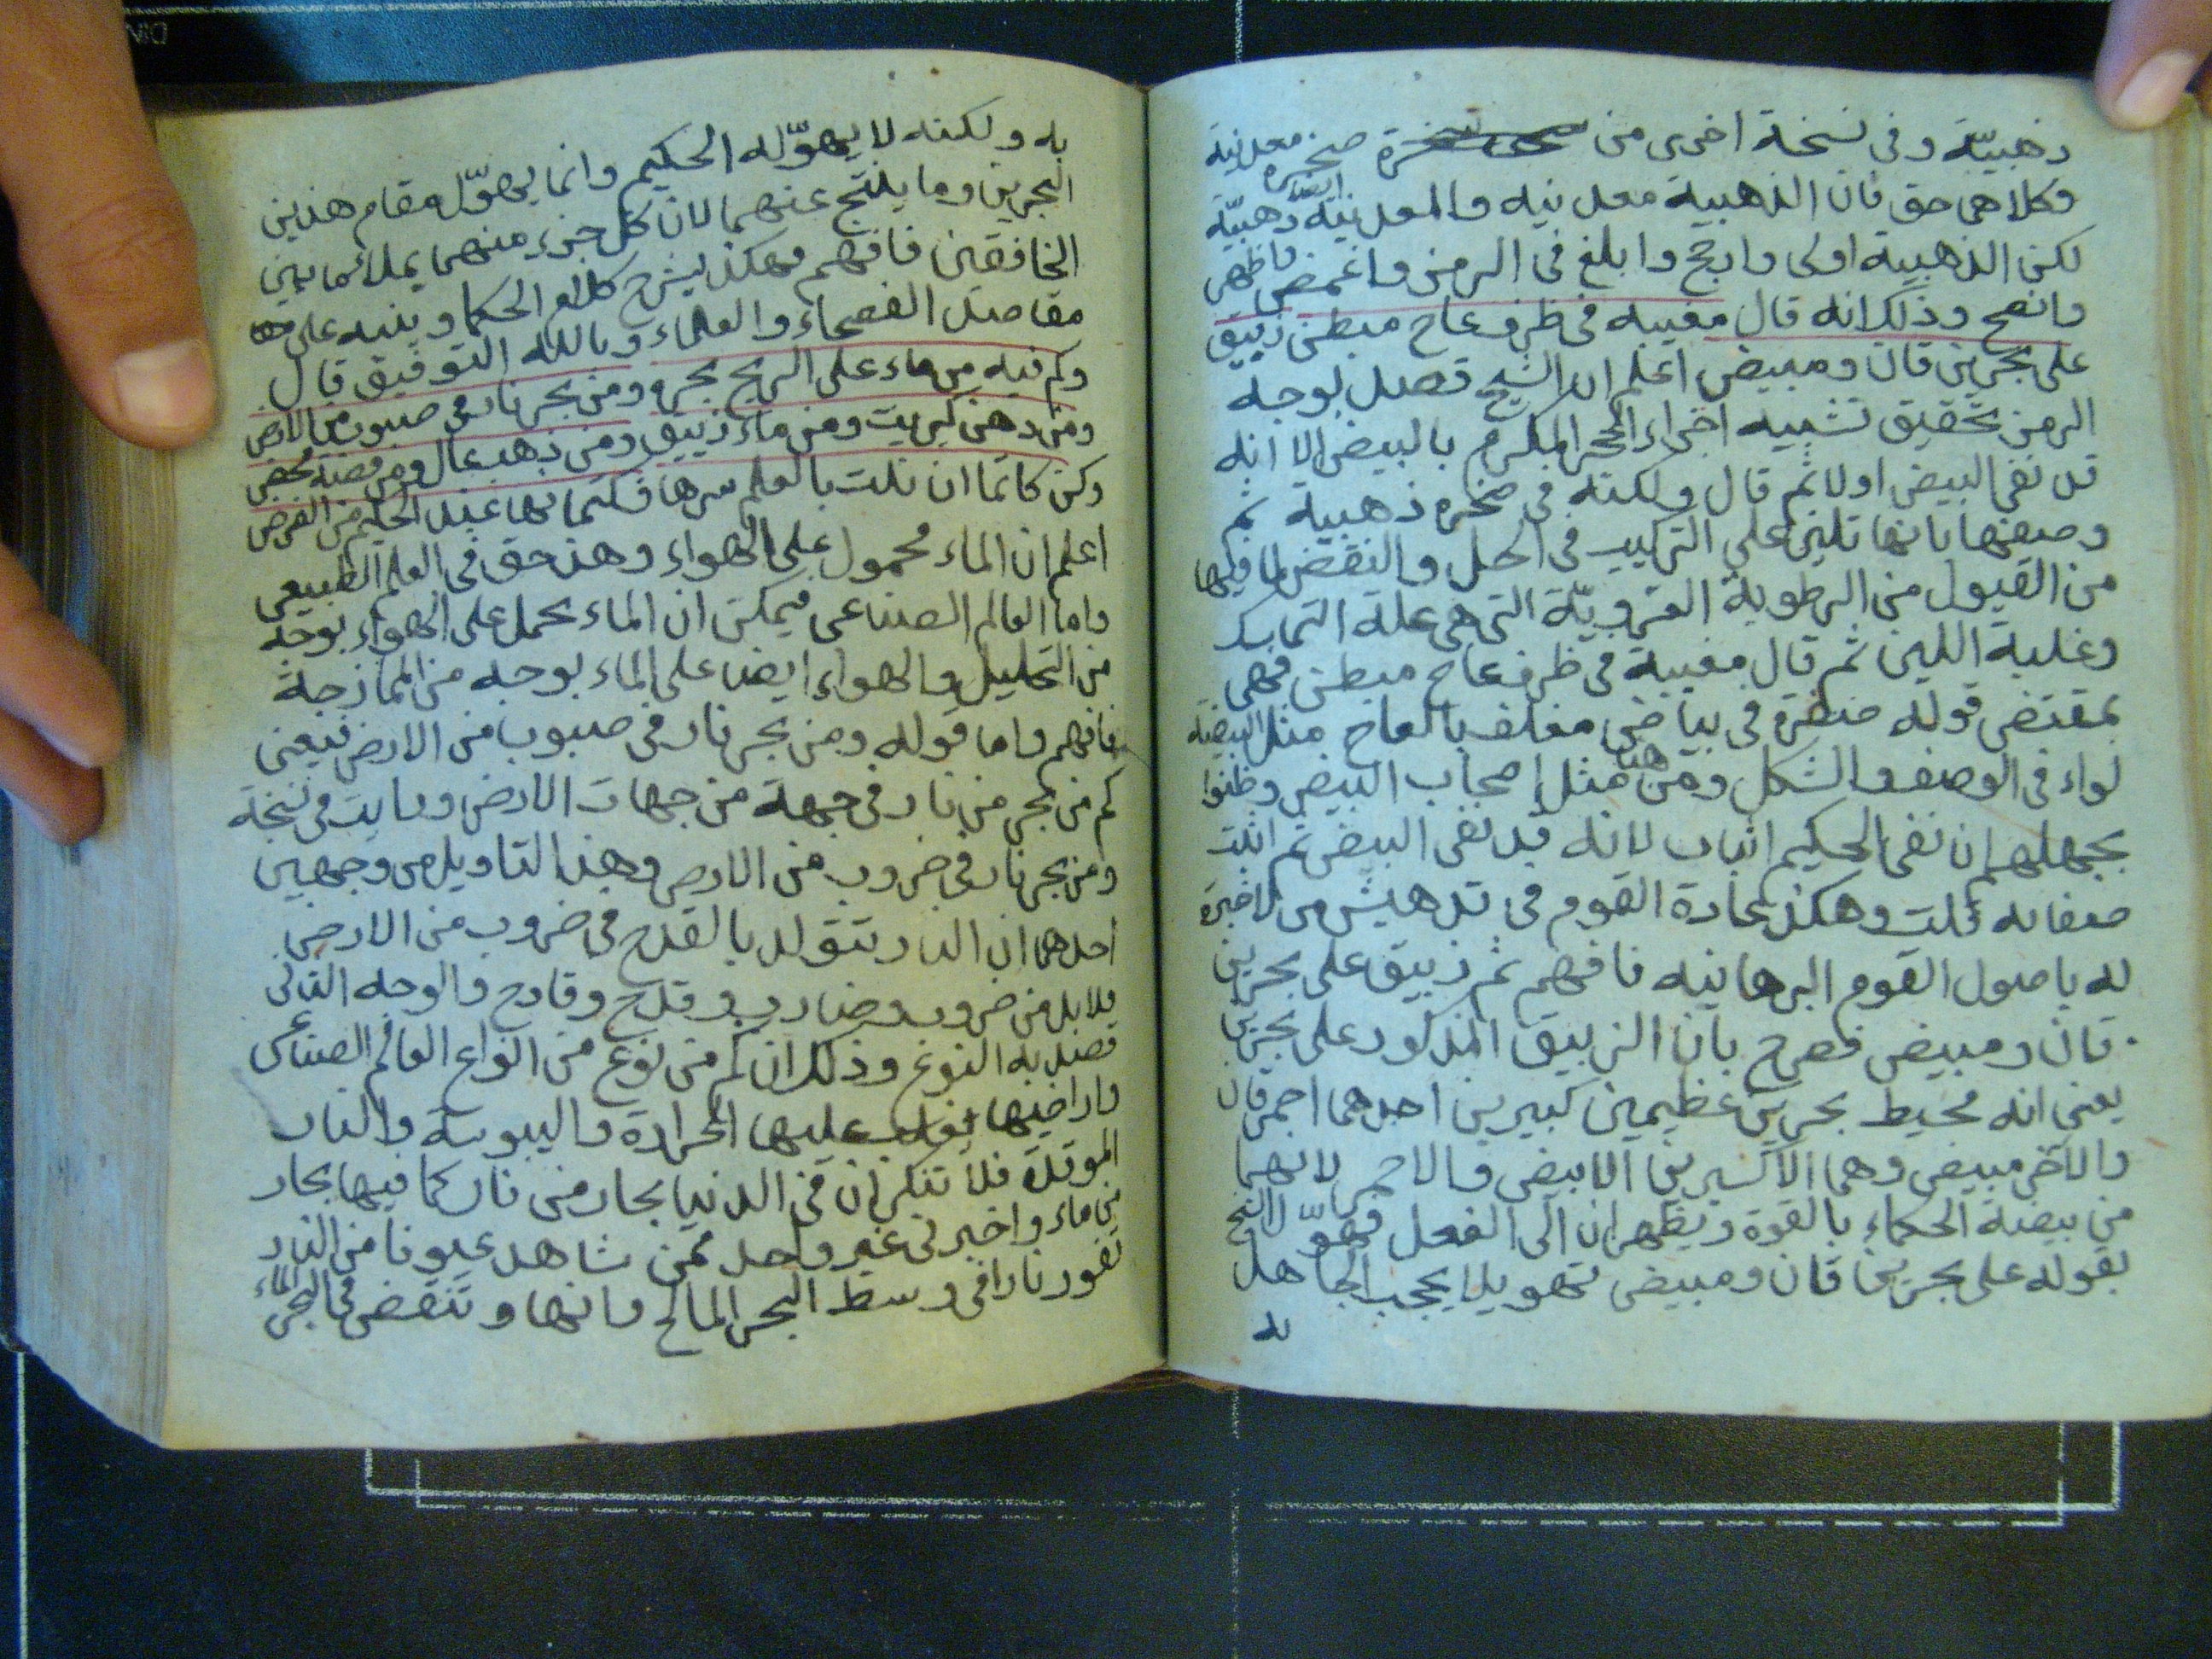 ذهبيّة وفى نسخة اخرى من صخرة معدنية
وكلاهى حق فان الذهبية معدنيه والمعدنية ايضا ذهبيّة
لكن الذهبية اولى وارجح وابلغ فى الرمز واغمض واظهر
وافصح وذلك انه قال مغيبه فى ظرف عاج مبطن زيبق
على بحرين قان ومبيض اعلم ان الشيخ قصد بوجه
الرمز تحقيق تشبيه اجزاء الحجر المكرم بالبيض الا انه
قد نفى البيض اولا ثم قال ولكنه فى صخره ذهبية ثم
وصفها بانها تلين على التركيب فى الحل والنقض لما فيها
من القبول من الرطوبة الغرويّة التى هى علة التماسك
وغلبة اللين ثم قال مغيبة فى ظرف عاج مبطن فهى
بمقتضى قوله صفرة فى بياض مغلف بالعاج مثل البيضة
لواء فى الوصف والشكل ومن هنا مثل اصحاب البيض وظنوا
بجهلهم ان نفى الحكيم اثبات لانه قد نفى البيض ثم اثبت
صفاته قلت وهكذا عادة القوم فى تدهيش من لا خبرة
له باصول القوم البرهانيه فافهم ثم زيبق على بحرين
قان ومبيض فصرح بان الزيبق المذكور على بحرين
يعنى انه محيط بحرين عظيمين كبيرين احدهما احمر قان
والاخر مبيض وهما الاكسيرين الابيض والاحمر لانهما
من بيضة الحكماء بالقوة ويظهران الى الفعل فهوّل الشيخ
بقوله على بحرين قان ومبيض تهويلا يحجب الجاهل
به
به ولكنه لا يهوّله الحكيم وانما يهوّل مقام هذين
البحرين وما ينتج عنهما لان كل جزء منهما يملأ ما بين
الخافقين فافهم فهكذا يشرح كلام الحكما وينبه على
مقاصد الفصحاء والعلماء وبالله التوفيق قال
وكم فيه من ماء على الريح بحره ومن بحر نار فى صبوب من الارض
ومن دهن كبريت ومن ماء زيبق ومن ذهب عال ومن فضة محض
وكن كاتما ان نلت بالعلم سرها فكتمانها عند الحكيم من الفرض
اعلم ان الماء محمول على الهواء وهذا حق فى العلم الطبيعى
واما العالم الصناعى فيمكن ان الماء يحمل على الهواء بوجه
من التحليل والهواء ايضا على الماء بوجه من الممازجة
فافهم واما قوله ومن بحر نار فى صبوب من الارض فيعنى
كم من بحر من نار فى جهة من جهات الارض ورايت فى نسخة
ومن بحر نار فى ضروب من الارض وهذا التاويل من وجهين
احدهما ان النار تتولد بالقدح فى ضروب من الارض
فلابد من ضروب وضارب وقدح وقادح والوجه الثانى
قصد به النوع وذلك ان كم من نوع من انواع العالم الصناعى
واراضيها يغلب عليها الحرارة واليبوسة والنار
الموقدة فلا تنكر ان فى الدنيا بحار من نار كما فيها بحار
من ماء واخبرنى غير واحد ممن شاهد عيونا من النار
تفور نارا فى وسط البحر المالح وانها وتنقض فى البحر الماء